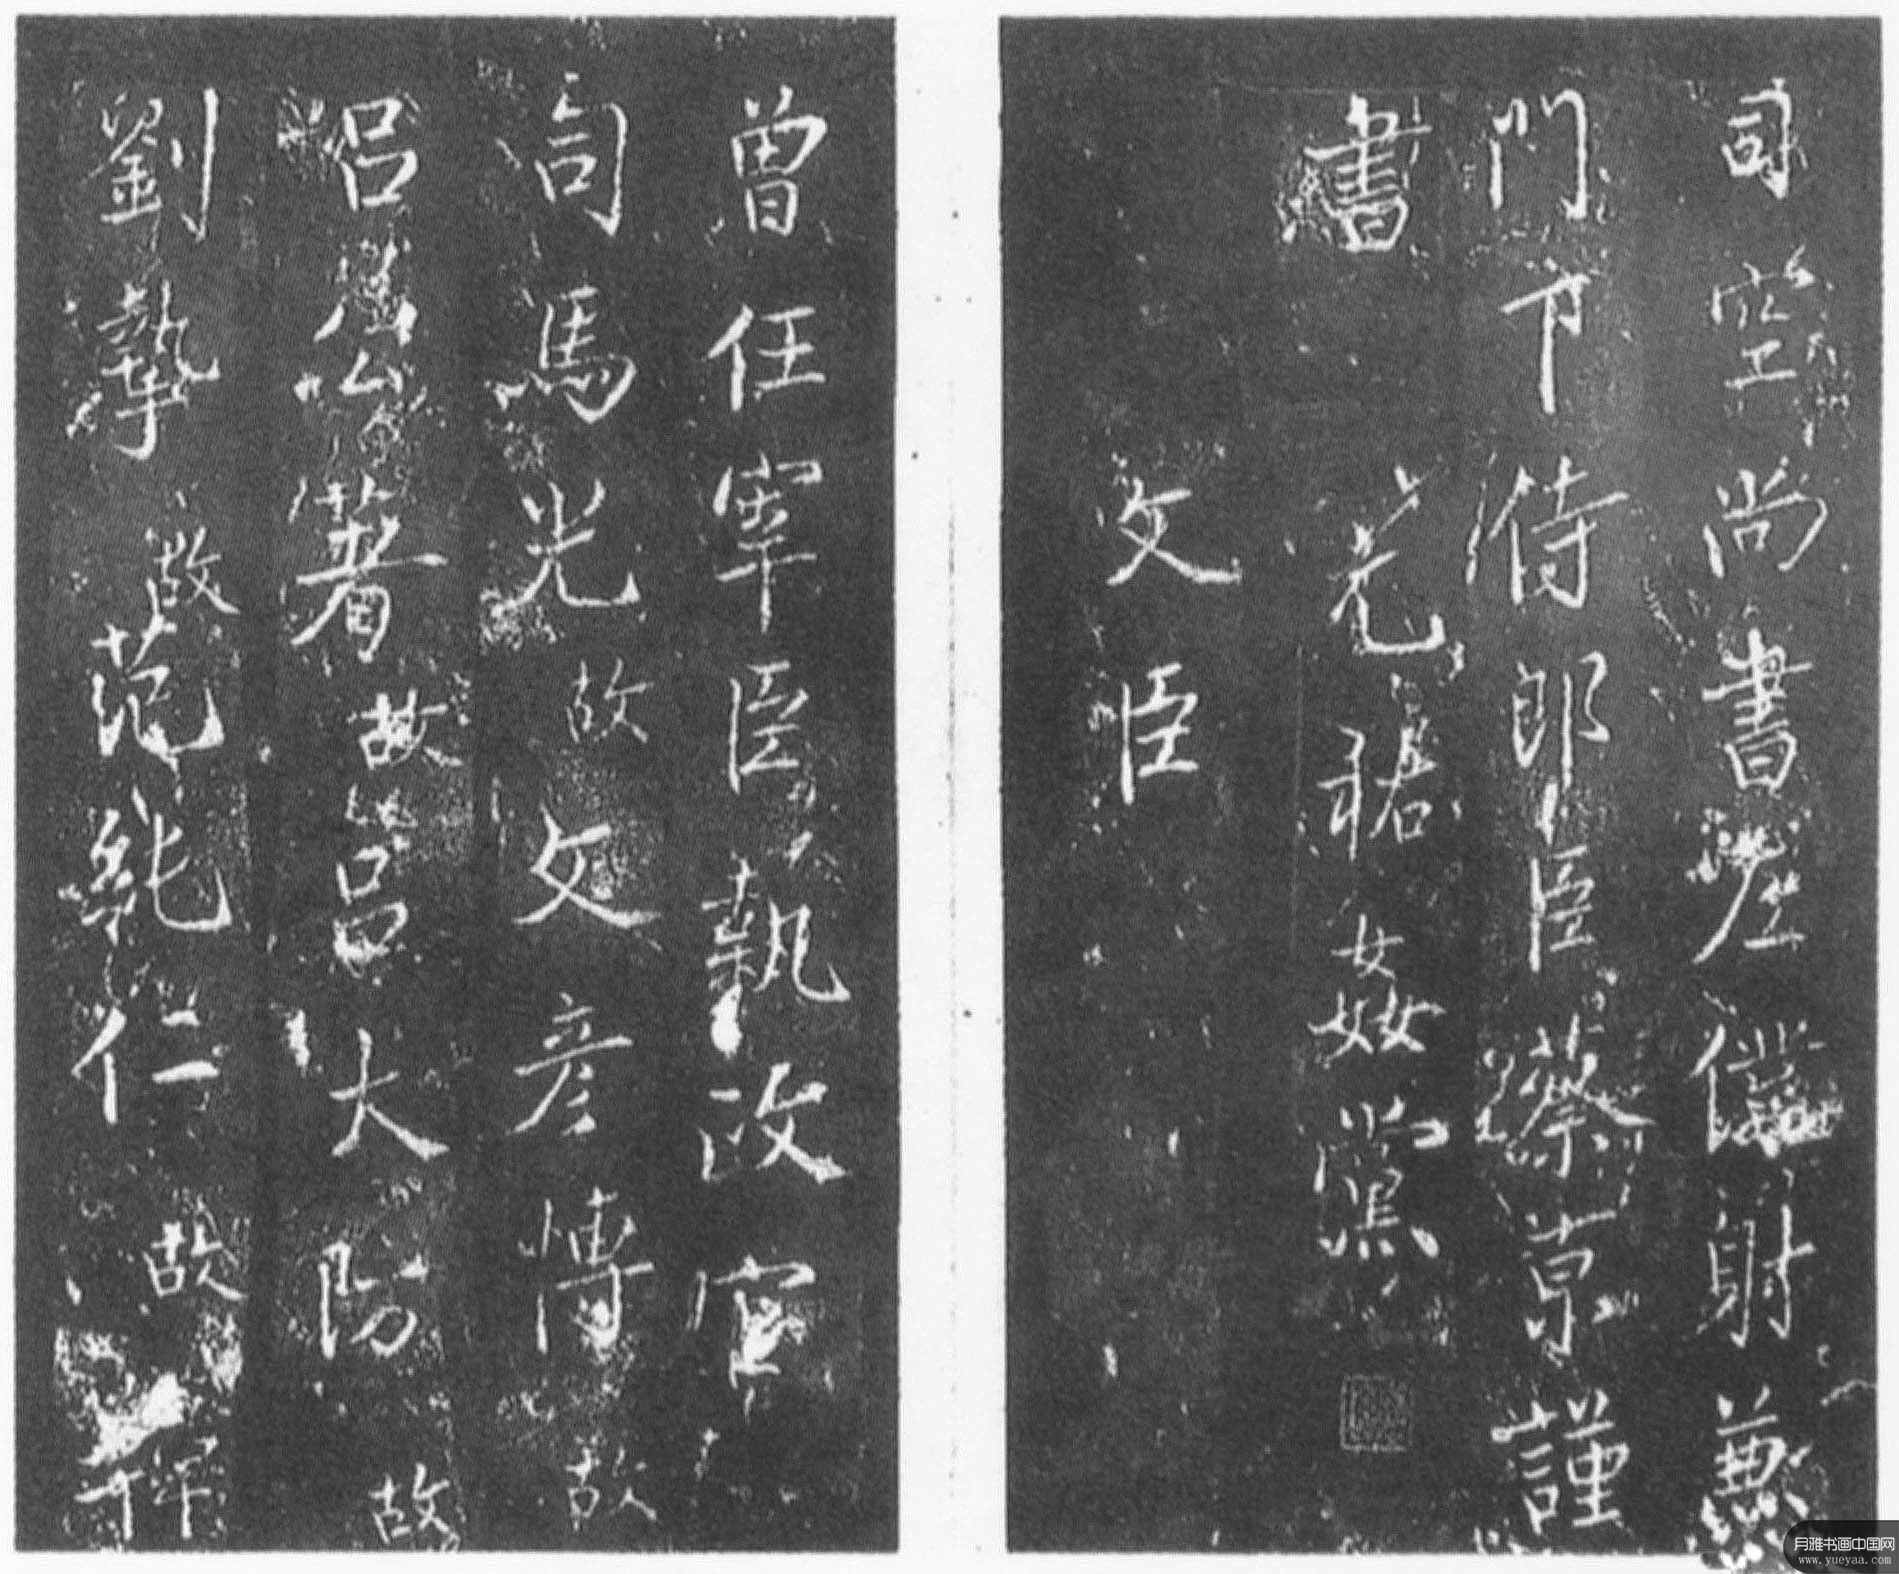 司空尚書左僕射兼
門下侍郎臣蔡京謹
書
元祐姦黨
文臣
曾任宰臣執政官
司馬光故文彦博故
呂公著故呂大防故
劉摯故范純仁故韓
月雅书画中国网
www.yueyaa.com